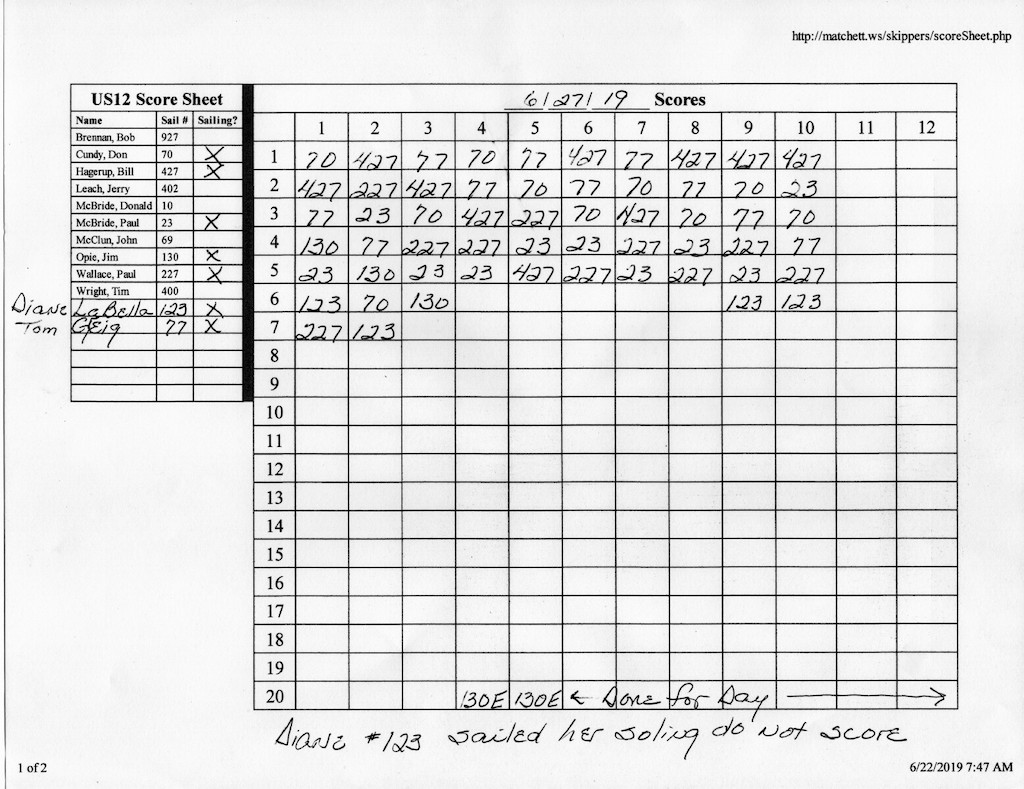 http://matchett.ws/skippers/scoreSheet.php
US12 Score Sheet
Name Sail # Sailing?
Brennan, Bob 927
Cundy, Don 70 X
Hagerup, Bill 427 X
Leach, Jerry 402
McBride, Donald 10
McBride, Paul 23 X
McClun, John 69
Opie, Jim 130 X
Wallace, Paul 227 X
Wright, Tim 400
Diane LaBella 123 X
Tom GEig 77 X
6/27/19 Scores
1 2 3 4 5 6 7 8 9 10 11 12
1 70 427 77 70 77 427 77 427 427 427
2 427 227 427 77 70 77 70 77 70 23
3 77 23 70 427 227 70 427 70 77 70
4 130 77 227 227 23 23 227 23 227 77
5 23 130 23 23 427 227 23 227 23 227
6 123 70 130 123 123
7 227 123
8
9
10
11
12
13
14
15
16
17
18
19
20 130E 130E ← Done for Day →
Diane #123 sailed her soling do not score
1 of 2
6/22/2019 7:47 AM